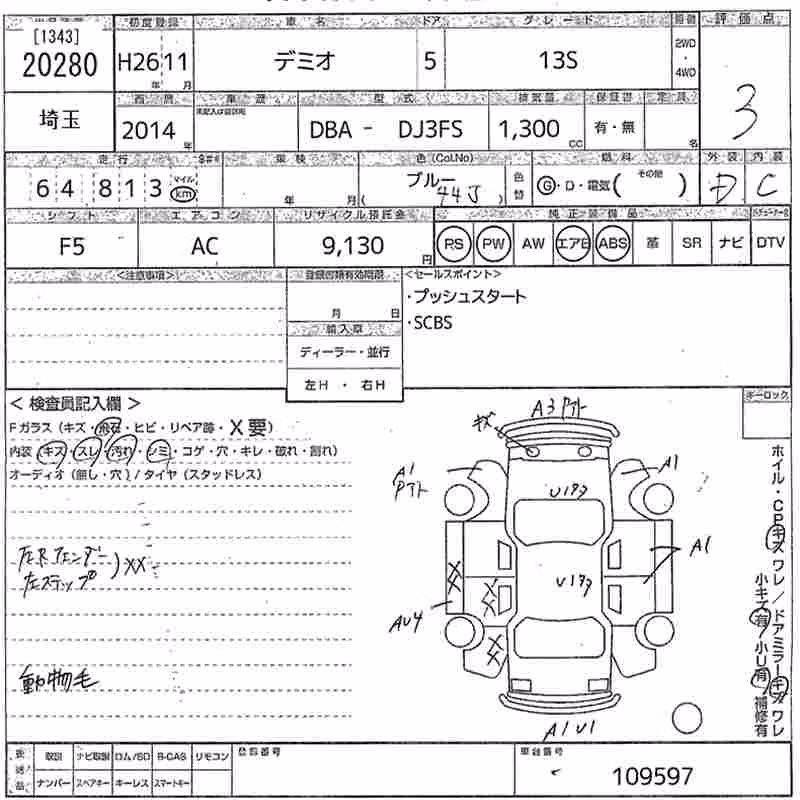 [1343]
20280
初度登録
H26 11
年 月
車名
デミオ
ドア
5
グレード
13S
2WD
・
4WD
評価点
3
埼玉
西暦
2014
年
車歴
未記入は自家用
型式
DBA - DJ3FS
排気量
1,300
CC
保証書
有・無
定員
名
走行
64813
マイル
km
車検
年 月
色(Col.No)
ブルー
( 44J )
色替
燃料
G・D・電気( その他 )
外装
D
内装
C
シフト
F5
エアコン
AC
リサイクル預託金
9,130
円
純正装備品
RS PW AW エアB ABS 革 SR ナビ DTV
<注意事項>
登録書類有効期限
月 日
輸入車
ディーラー・並行
左H ・ 右H
<セールスポイント>
・プッシュスタート
・SCBS
キーロック
< 検査員記入欄 >
Fガラス (キズ・飛石・ヒビ・リペア跡・X要)
内装 (キズ・スレ・汚れ・シミ・コゲ・穴・キレ・破れ・割れ)
オーディオ (無し・穴) / タイヤ (スタッドレス)
左Rフェンダー
左ステップ
) XX
動物毛
A3 Pアト
キズ
A1
Pアト
A1
A1
AU4
XX
XX
XX
A1 U1
ホイル・CPキズ ワレ / ドアミラーキズ ワレ
小キズ有 小U有 補修有
取説 ナビ取説 ロム/SD B-CAS リモコン
ナンバー スペアキー キーレス スマートキー
登録番号
車台番号
109597